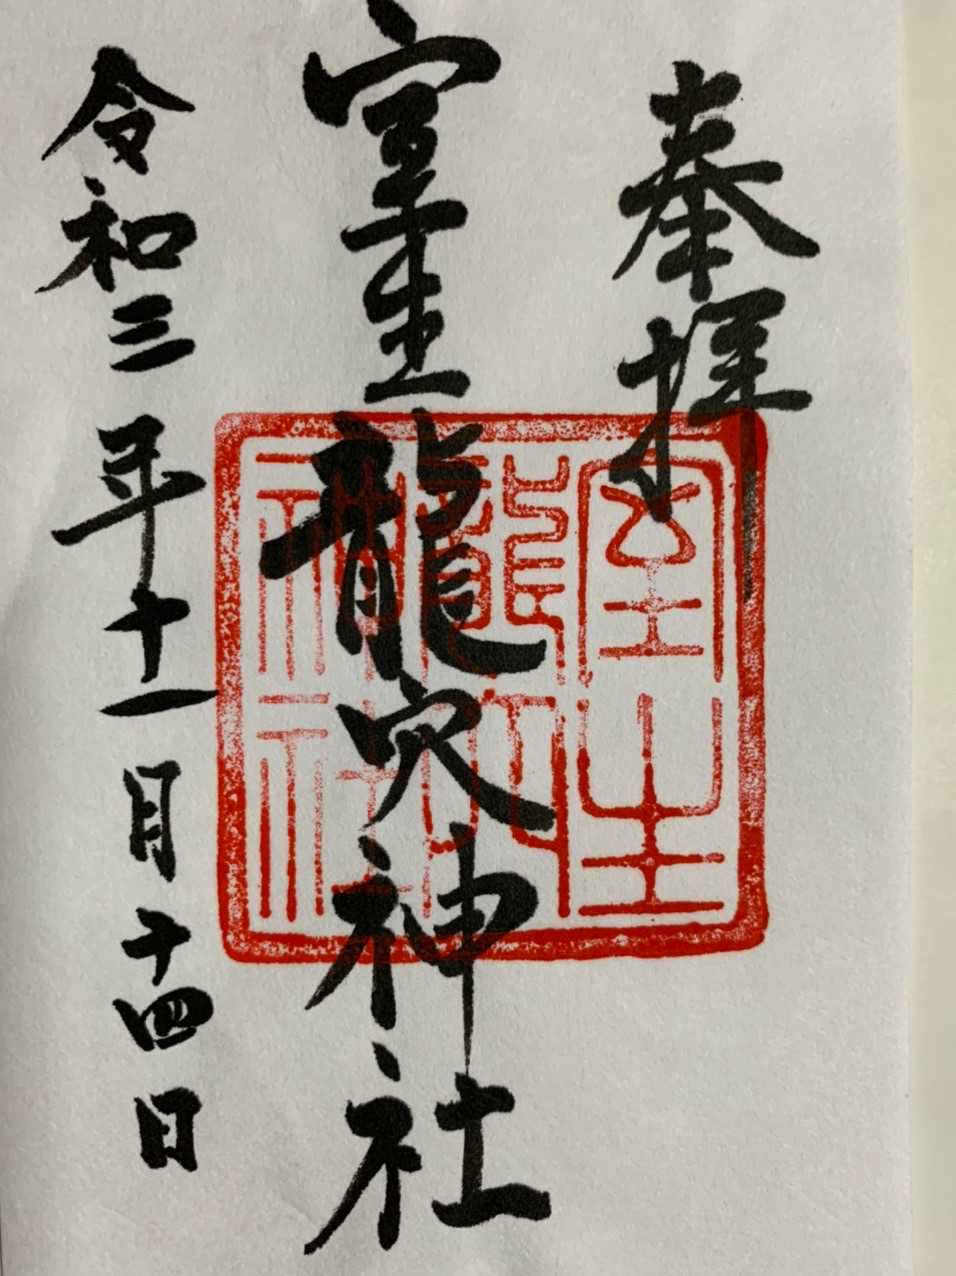 奉拝
室生龍穴神社
令和三年十一月十四日
室生
龍穴
神社